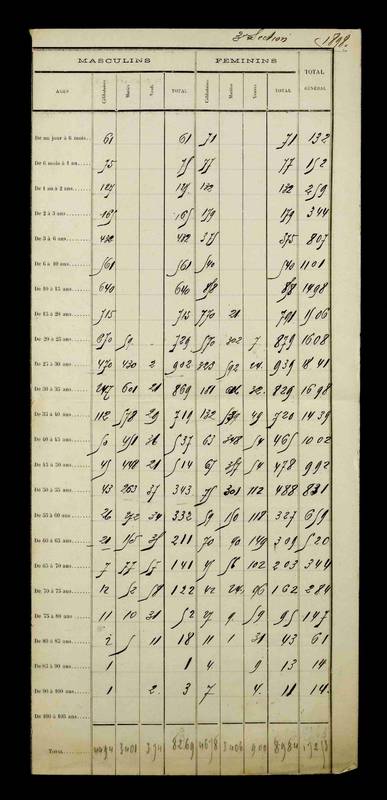 3e Section 1898.
MASCULINS FEMININS TOTAL GÉNÉRAL
AGES Célibataires Mariés Veufs TOTAL Célibataires Mariées Veuves TOTAL
De un jour à 6 mois 61 61 71 71 132
De 6 mois à 1 an 75 75 77 77 152
De 1 an à 2 ans 127 127 132 132 259
De 2 à 3 ans 165 165 179 179 344
De 3 à 6 ans 432 432 375 375 807
De 6 à 10 ans 561 561 540 540 1101
De 10 à 15 ans 640 640 858 858 1498
De 15 à 20 ans 715 715 770 21 791 1506
De 20 à 25 ans 670 59 729 570 302 7 879 1608
De 25 à 30 ans 470 430 2 902 323 592 24 939 1841
De 30 à 35 ans 247 601 21 869 32 829 1698
De 35 à 40 ans 112 578 29 719 132 49 720 1439
De 40 à 45 ans 50 451 36 537 63 348 54 465 1002
De 45 à 50 ans 45 448 21 514 67 357 54 478 992
De 50 à 55 ans 43 263 37 343 75 301 112 488 831
De 55 à 60 ans 26 272 34 332 59 150 118 327 659
De 60 à 65 ans 21 155 35 211 70 90 149 309 520
De 65 à 70 ans 7 77 57 141 45 56 102 203 344
De 70 à 75 ans 12 52 58 122 42 24 96 162 284
De 75 à 80 ans 11 10 31 52 27 9 59 95 147
De 80 à 85 ans 2 5 11 18 11 1 31 43 61
De 85 à 90 ans 1 1 4 9 13 14
De 90 à 100 ans 1 2 3 7 4 11 14
De 100 à 105 ans
TOTAL 4494 3401 374 8269 4678 3406 900 8984 17253